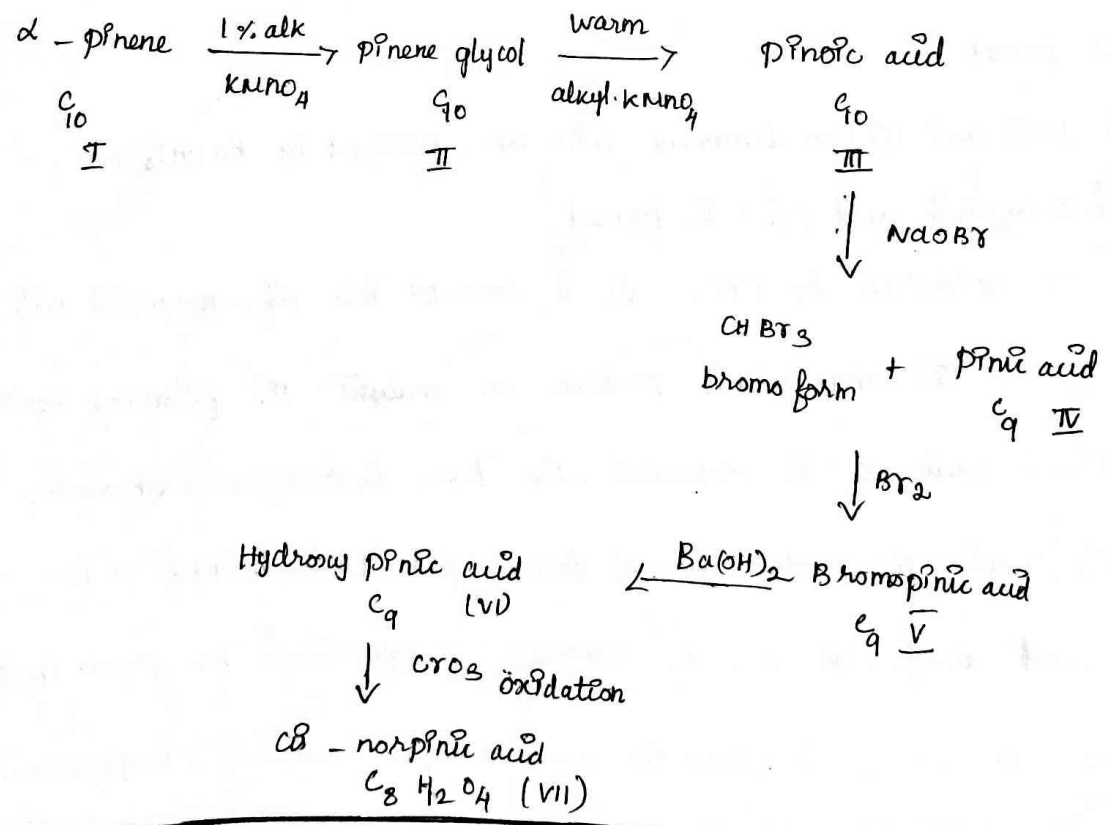 α - pinene 1% alk KMnO4 pinene glycol warm alkyl. KMnO4 pinoic acid
C10 C10 C10
I II III
NaOBr
CHBr3 bromoform + pinic acid
C9 IV
Br2
Hydroxy pinic acid Ba(OH)2 Bromopinic acid
C9 (VI) C9 V
CrO3 oxidation
cis - norpinic acid
C8 H2 O4 (VII)